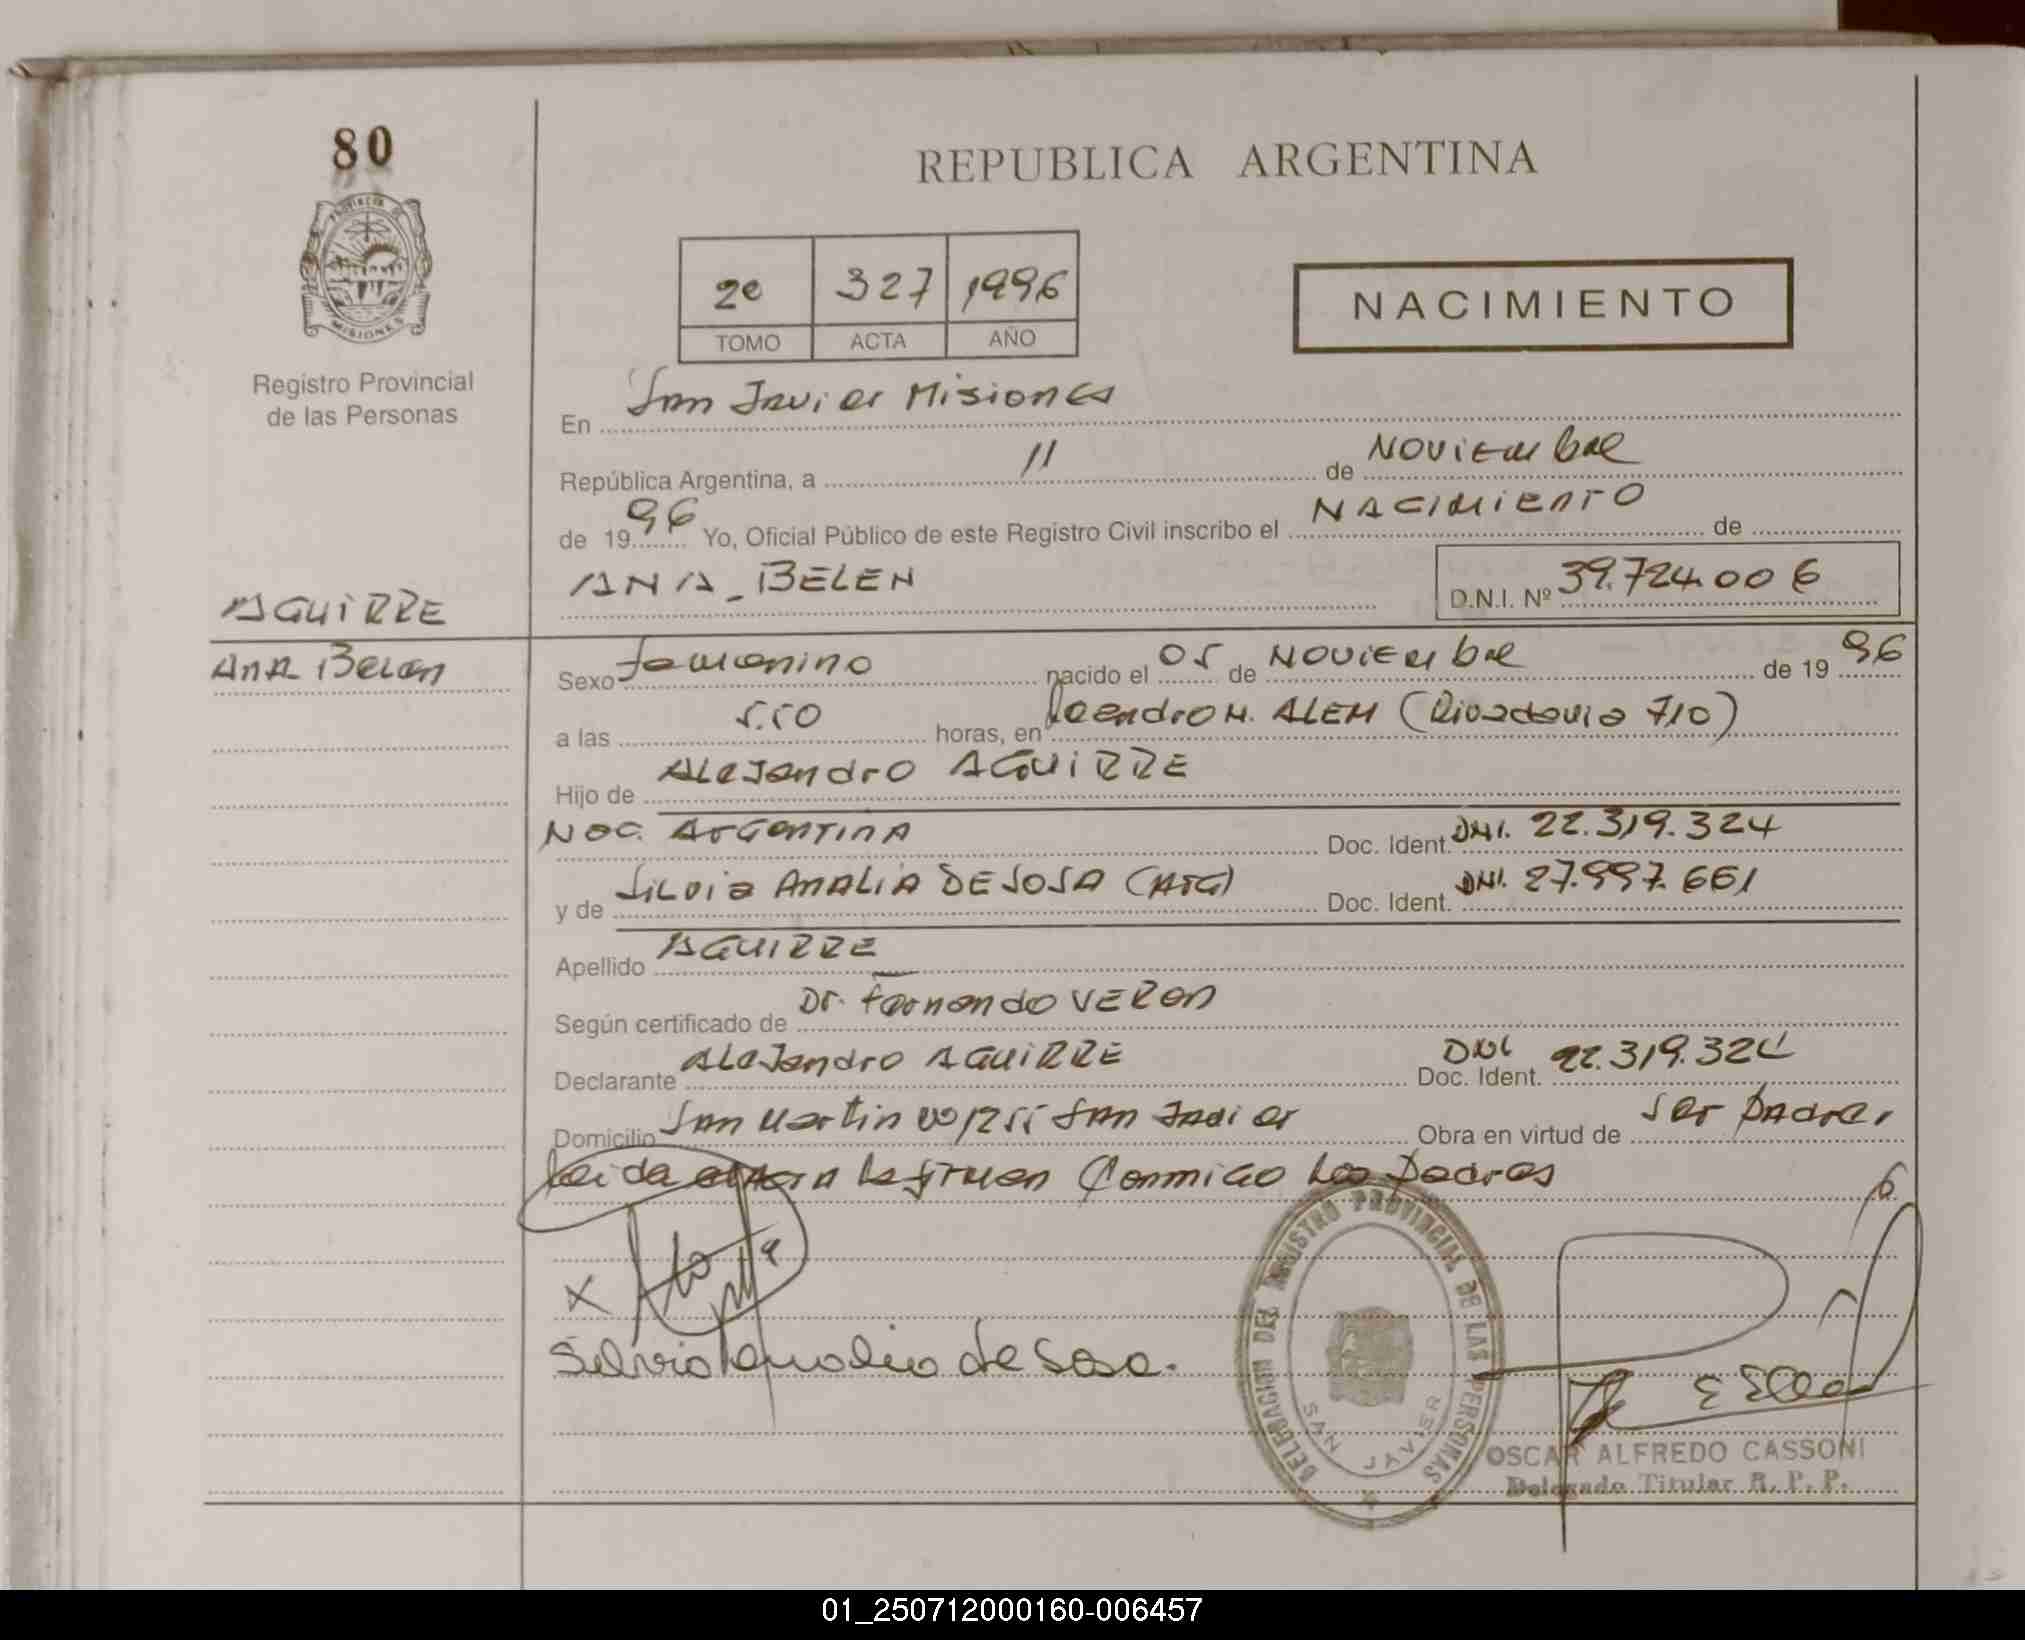 80
PROVINCIA DE
MISIONES
Registro Provincial
de las Personas
REPUBLICA ARGENTINA
2º 327 1996
TOMO ACTA AÑO
NACIMIENTO
En San Javier Misiones
República Argentina, a 11 de NOVIEMbRE
de 1996 Yo, Oficial Público de este Registro Civil inscribo el NACIMIENTO de
ANA_BELEN D.N.I. Nº 39.724.006
AGUIRRE
Ana Belen
Sexo femenino nacido el 05 de NOVIEMbRE de 1996
a las 5.50 horas, en Leandro N. ALEM (Rivadavia 710)
Hijo de Alejandro AGUIRRE
Nac. Argentina Doc. Ident. DNI. 22.319.324
y de Silvia ANALIA DE SOSA (Arg) Doc. Ident. DNI. 27.997.661
Apellido AGUIRRE
Según certificado de Dr. Fernando VERON
Declarante Alejandro AGUIRRE Doc. Ident. DNI 22.319.324
Domicilio San Martin 1255 San Javier Obra en virtud de ser padre,
leida la firman Conmigo Los Padres
X
Silvia Analia de Sosa.
DELEGACION DEL REGISTRO PROVINCIAL DE LAS PERSONAS
SAN JAVIER
OSCAR ALFREDO CASSONI
Delegado Titular R. P. P.
01_250712000160-006457